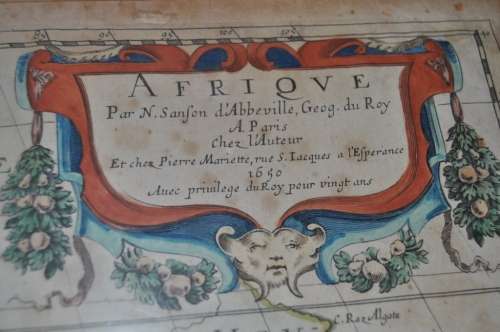 AFRIQVE
Par N. Sanson d'Abbeville, Geog. du Roy
A Paris
Chez l'Auteur
Et chez Pierre Mariette, rue S. Iacques a l'Esperance
1650
Avec privilege du Roy pour vingt ans
C. Raz Algate